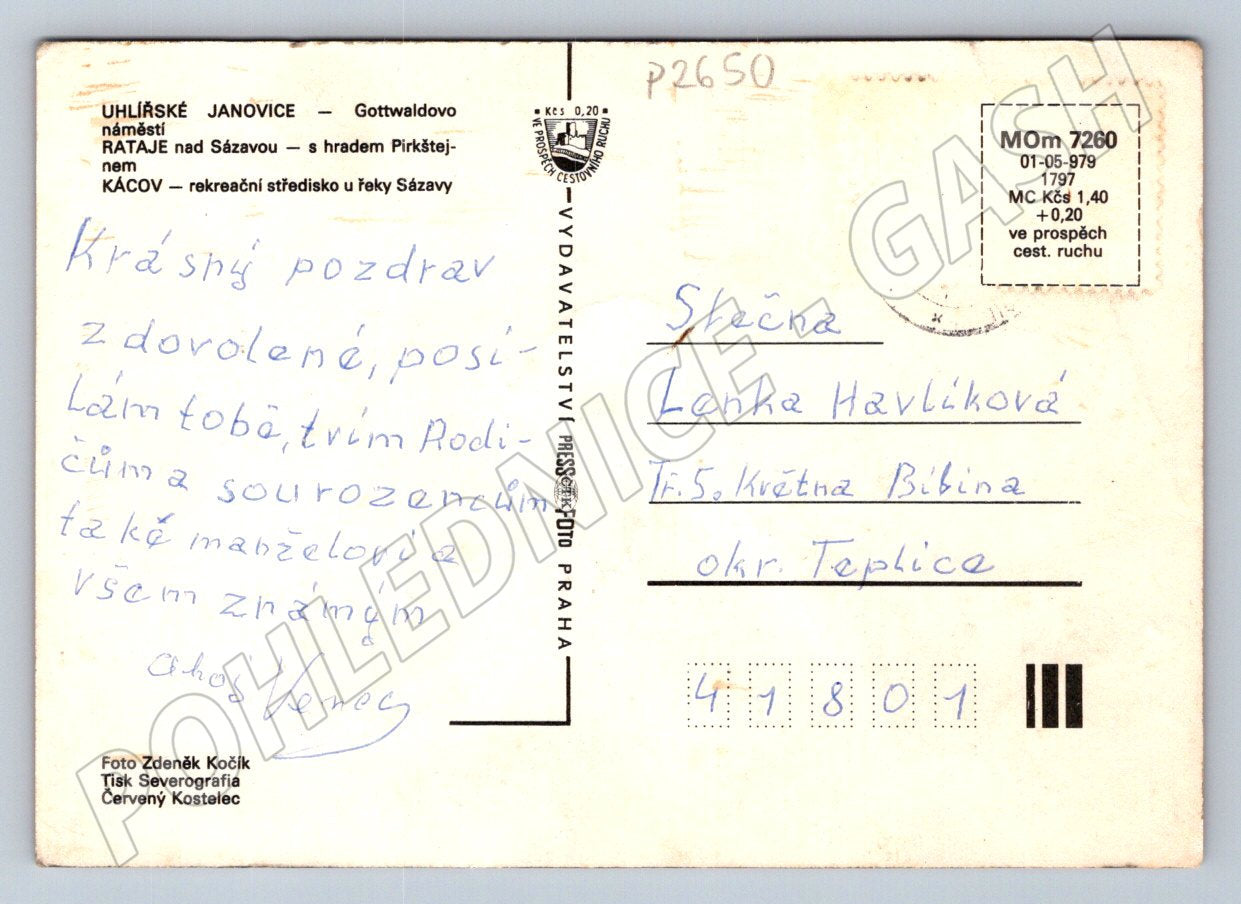 P2650
UHLÍŘSKÉ JANOVICE – Gottwaldovo
náměstí
RATAJE nad Sázavou – s hradem Pirkštej-
nem
KÁCOV – rekreační středisko u řeky Sázavy
Krásný pozdrav
z dovolené, posí-
lám tobě, tvím Rodi-
čům a sourozencům
také manželovi a
všem známým
ahoj Venec
Foto Zdeněk Kočík
Tisk Severografia
Červený Kostelec
Kčs 0,20
VE PROSPĚCH CESTOVNÍHO RUCHU
VYDAVATELSTVÍ PRESSFOTO PRAHA
ČTK
MOm 7260
01-05-979
1797
MC Kčs 1,40
+0,20
ve prospěch
cest. ruchu
Slečna
Lenka Havlíková
Tř. 5. Května Bíbina
okr. Teplice
41801
POHLEDNICE - GASH